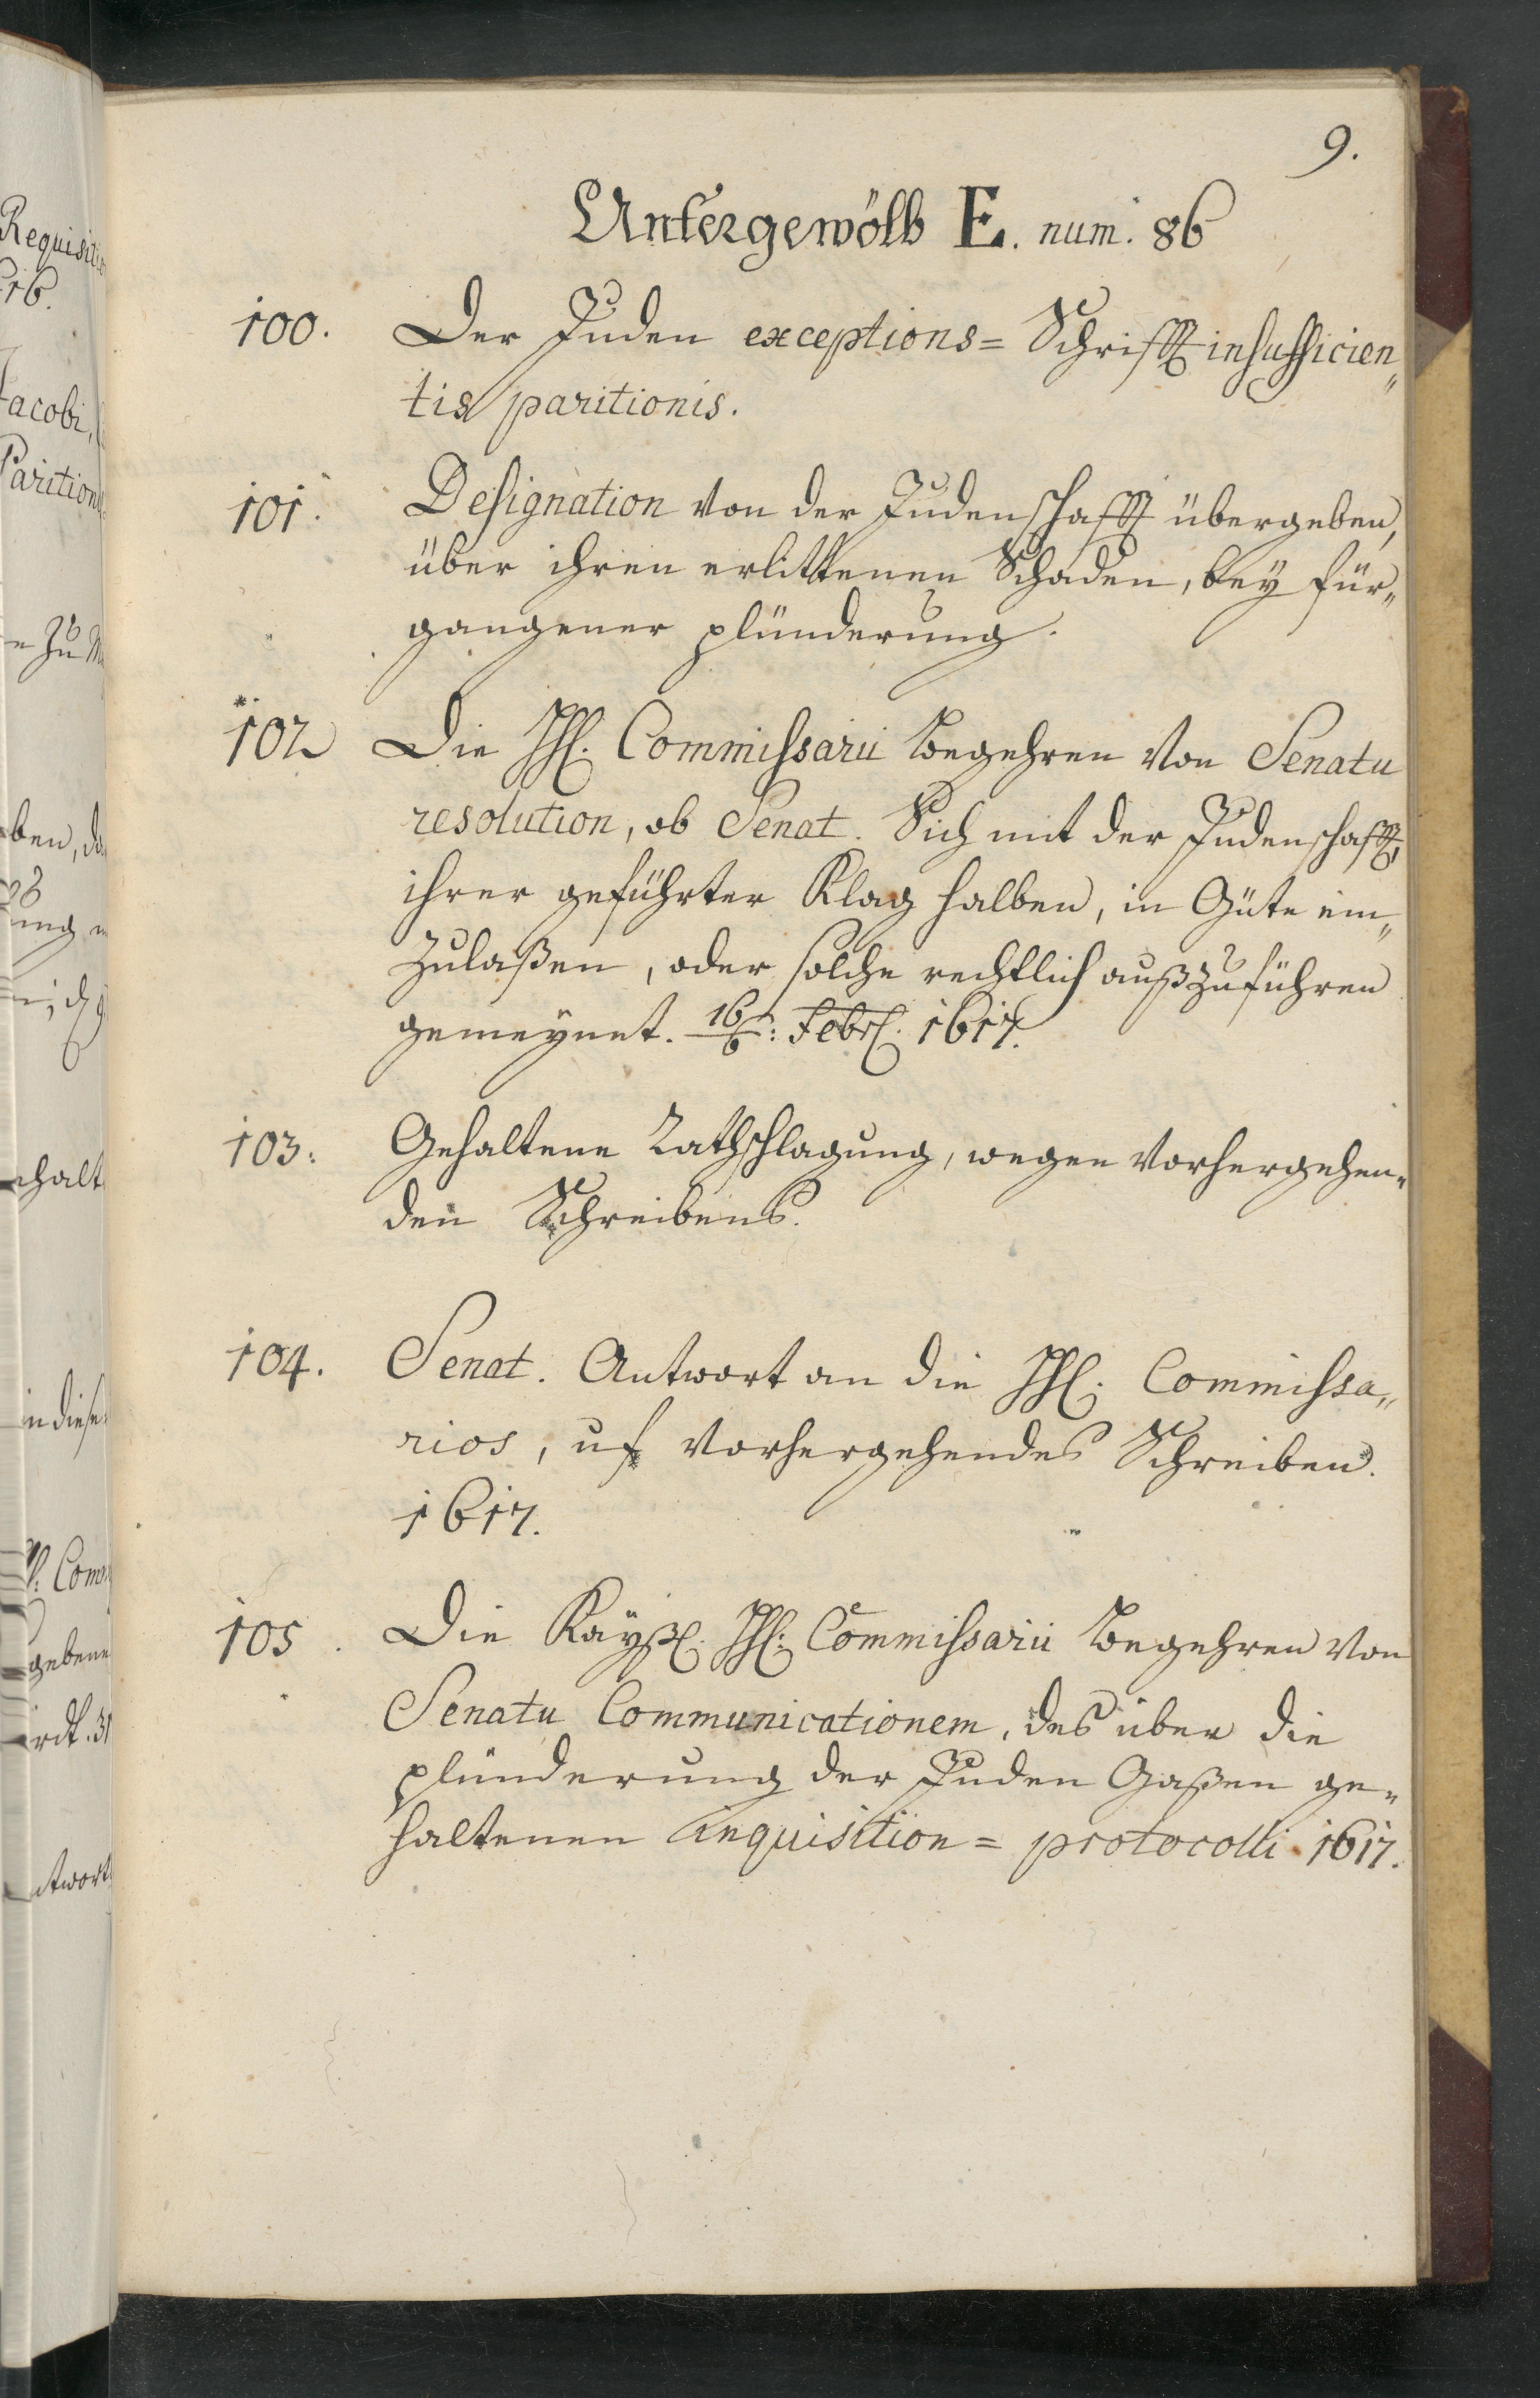 9.
Untergewölb E. num. 86
100. Der Juden exceptions= Schrifft insufficien„
tis paritionis.
101. Designation von der Judenschafft übergeben,
über ihren erlittenen Schaden, bey für„
gangener plünderung.
102 Die HH. Commissarii begehren von Senatu
resolution, ob Senat. Sich mit der Judenschafft,
ihrer geführter Klag halben, in Güte ein„
zulaßen, oder solche rechtlich außzuführen
gemeynet. 16/6: Febr. 1617.
103. Gehaltene Rathschlagung, wegen vorhergehen„
den Schreibens.
104. Senat. Antwort an die HH. Commissa„
rios, uf vorhergehendes Schreiben.
1617.
105. Die Kayß. HH. Commissarii begehren von
Senatu Communicationem, des über die
plünderung der Juden Gaßen ge„
haltenen Inquisition= protocolli 1617.